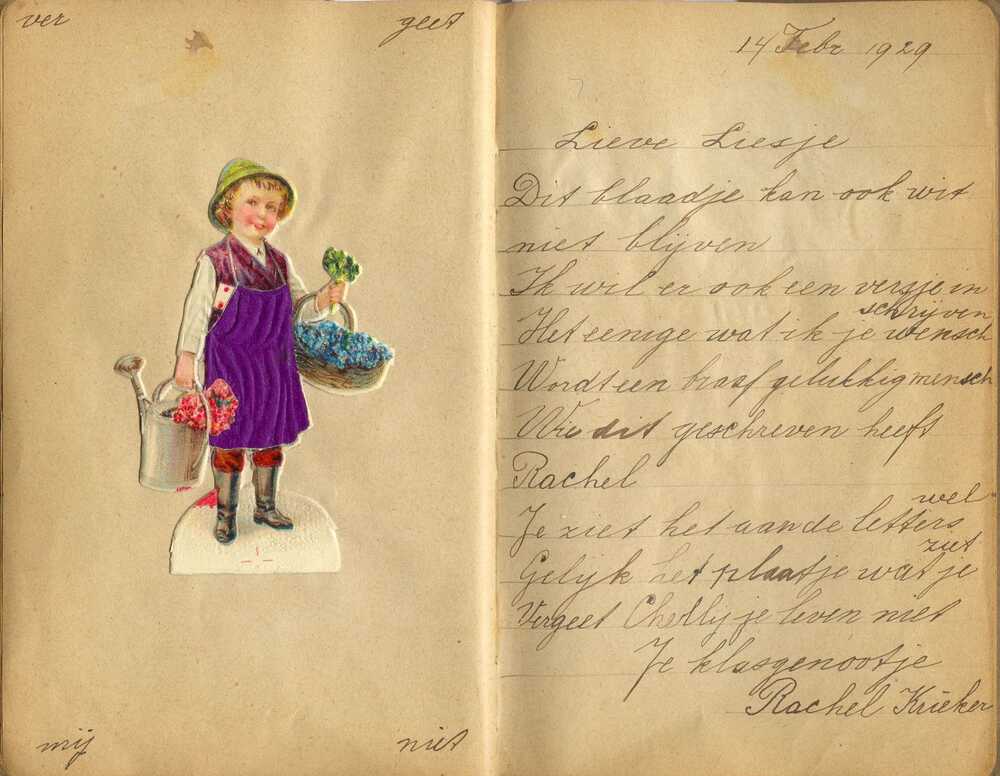 ver geet
mij niet
14 Febr 1929
Lieve Liesje
Dit blaadje kan ook wit
niet blijven
Ik wil er ook een versje in
schrijven
Het eenige wat ik je wensch
Wordt een braaf gelukkig mensch
Wie dit geschreven heeft
Rachel
Je ziet het aan de letters
wel
Gelijk het plaatje wat je
ziet
Vergeet Chelly je leven niet
Je klasgenootje
Rachel Krieker